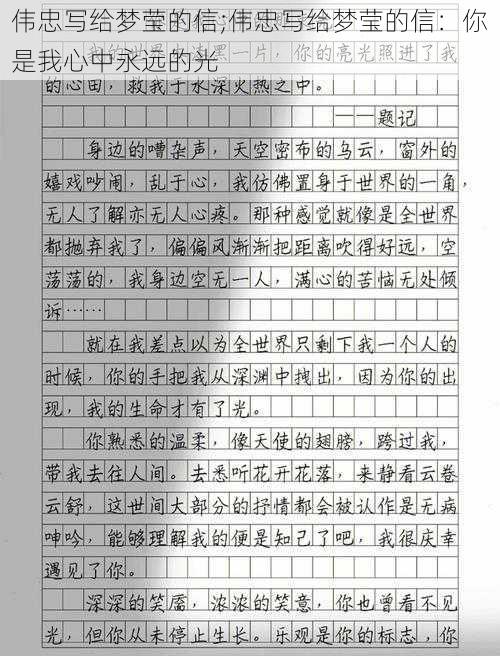 伟忠写给梦莹的信;伟忠写给梦莹的信：你
是我心中永远的光
我的世界漆黑一片，你的亮光照进了我
的心田，救我于水深火热之中。
——题记
身边的嘈杂声，天空密布的乌云，窗外的
嬉戏吵闹，乱于心，我仿佛置身于世界的一角，
无人了解亦无人心疼。那种感觉就像是全世界
都抛弃我了，偏偏风渐渐把距离吹得好远，空
荡荡的，我身边空无一人，满心的苦恼无处倾
诉……
就在我差点以为全世界只剩下我一个人的
时候，你的手把我从深渊中拽出，因为你的出
现，我的生命才有了光。
你熟悉的温柔，像天使的翅膀，跨过我，
带我去往人间。去悉听花开花落，来静看云卷
云舒，这世间大部分的抒情都会被认作是无病
呻吟，能够理解我的便是知己了吧，我很庆幸
遇见了你。
深深的笑靥，浓浓的笑意，你也曾看不见
光，但你从未停止生长。乐观是你的标志，你